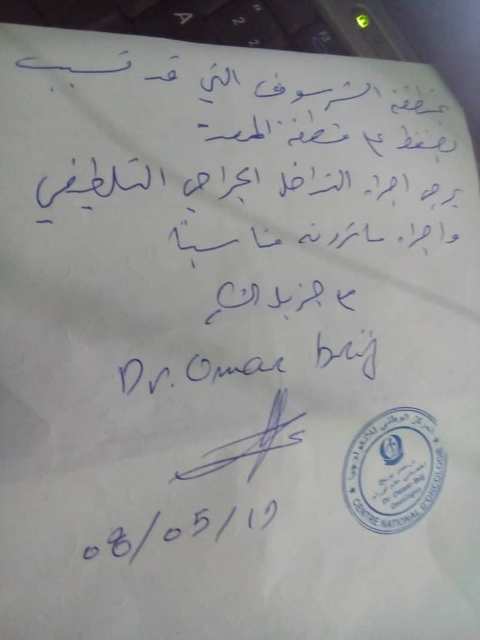 بمنطقة الشرسوف التي قد تسبب
بضغط على منطقة المعدة
يرجى اجراء التداخل الجراحي التلطيفي
واجراء ماترونه مناسبًا
مع جزيل الشكر
Dr. Omar Brij
08/05/19
المركز الوطني للأنكولوجيا
Dr. Omar Brij
CENTRE NATIONAL D'ONCOLOGIE